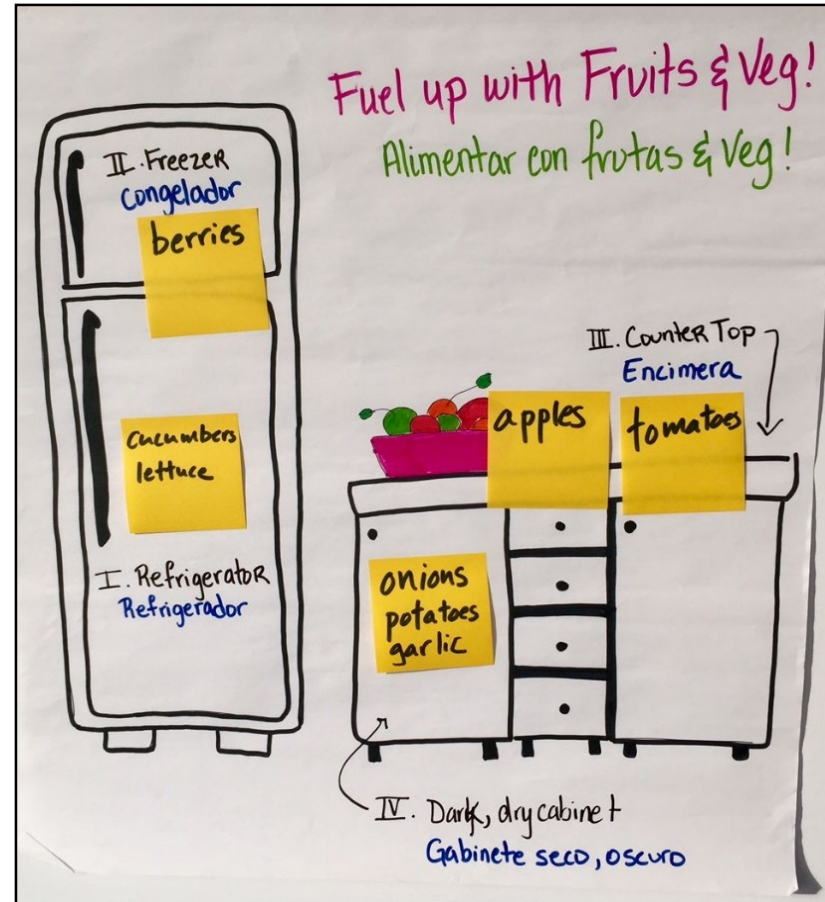 Fuel up with Fruits & Veg!
Alimentar con frutas & Veg!
II. Freezer
Congelador
berries
cucumbers
lettuce
I. Refrigerator
Refrigerador
III. Counter Top
Encimera
apples
tomatoes
onions
potatoes
garlic
IV. Dark, dry cabinet
Gabinete seco, oscuro